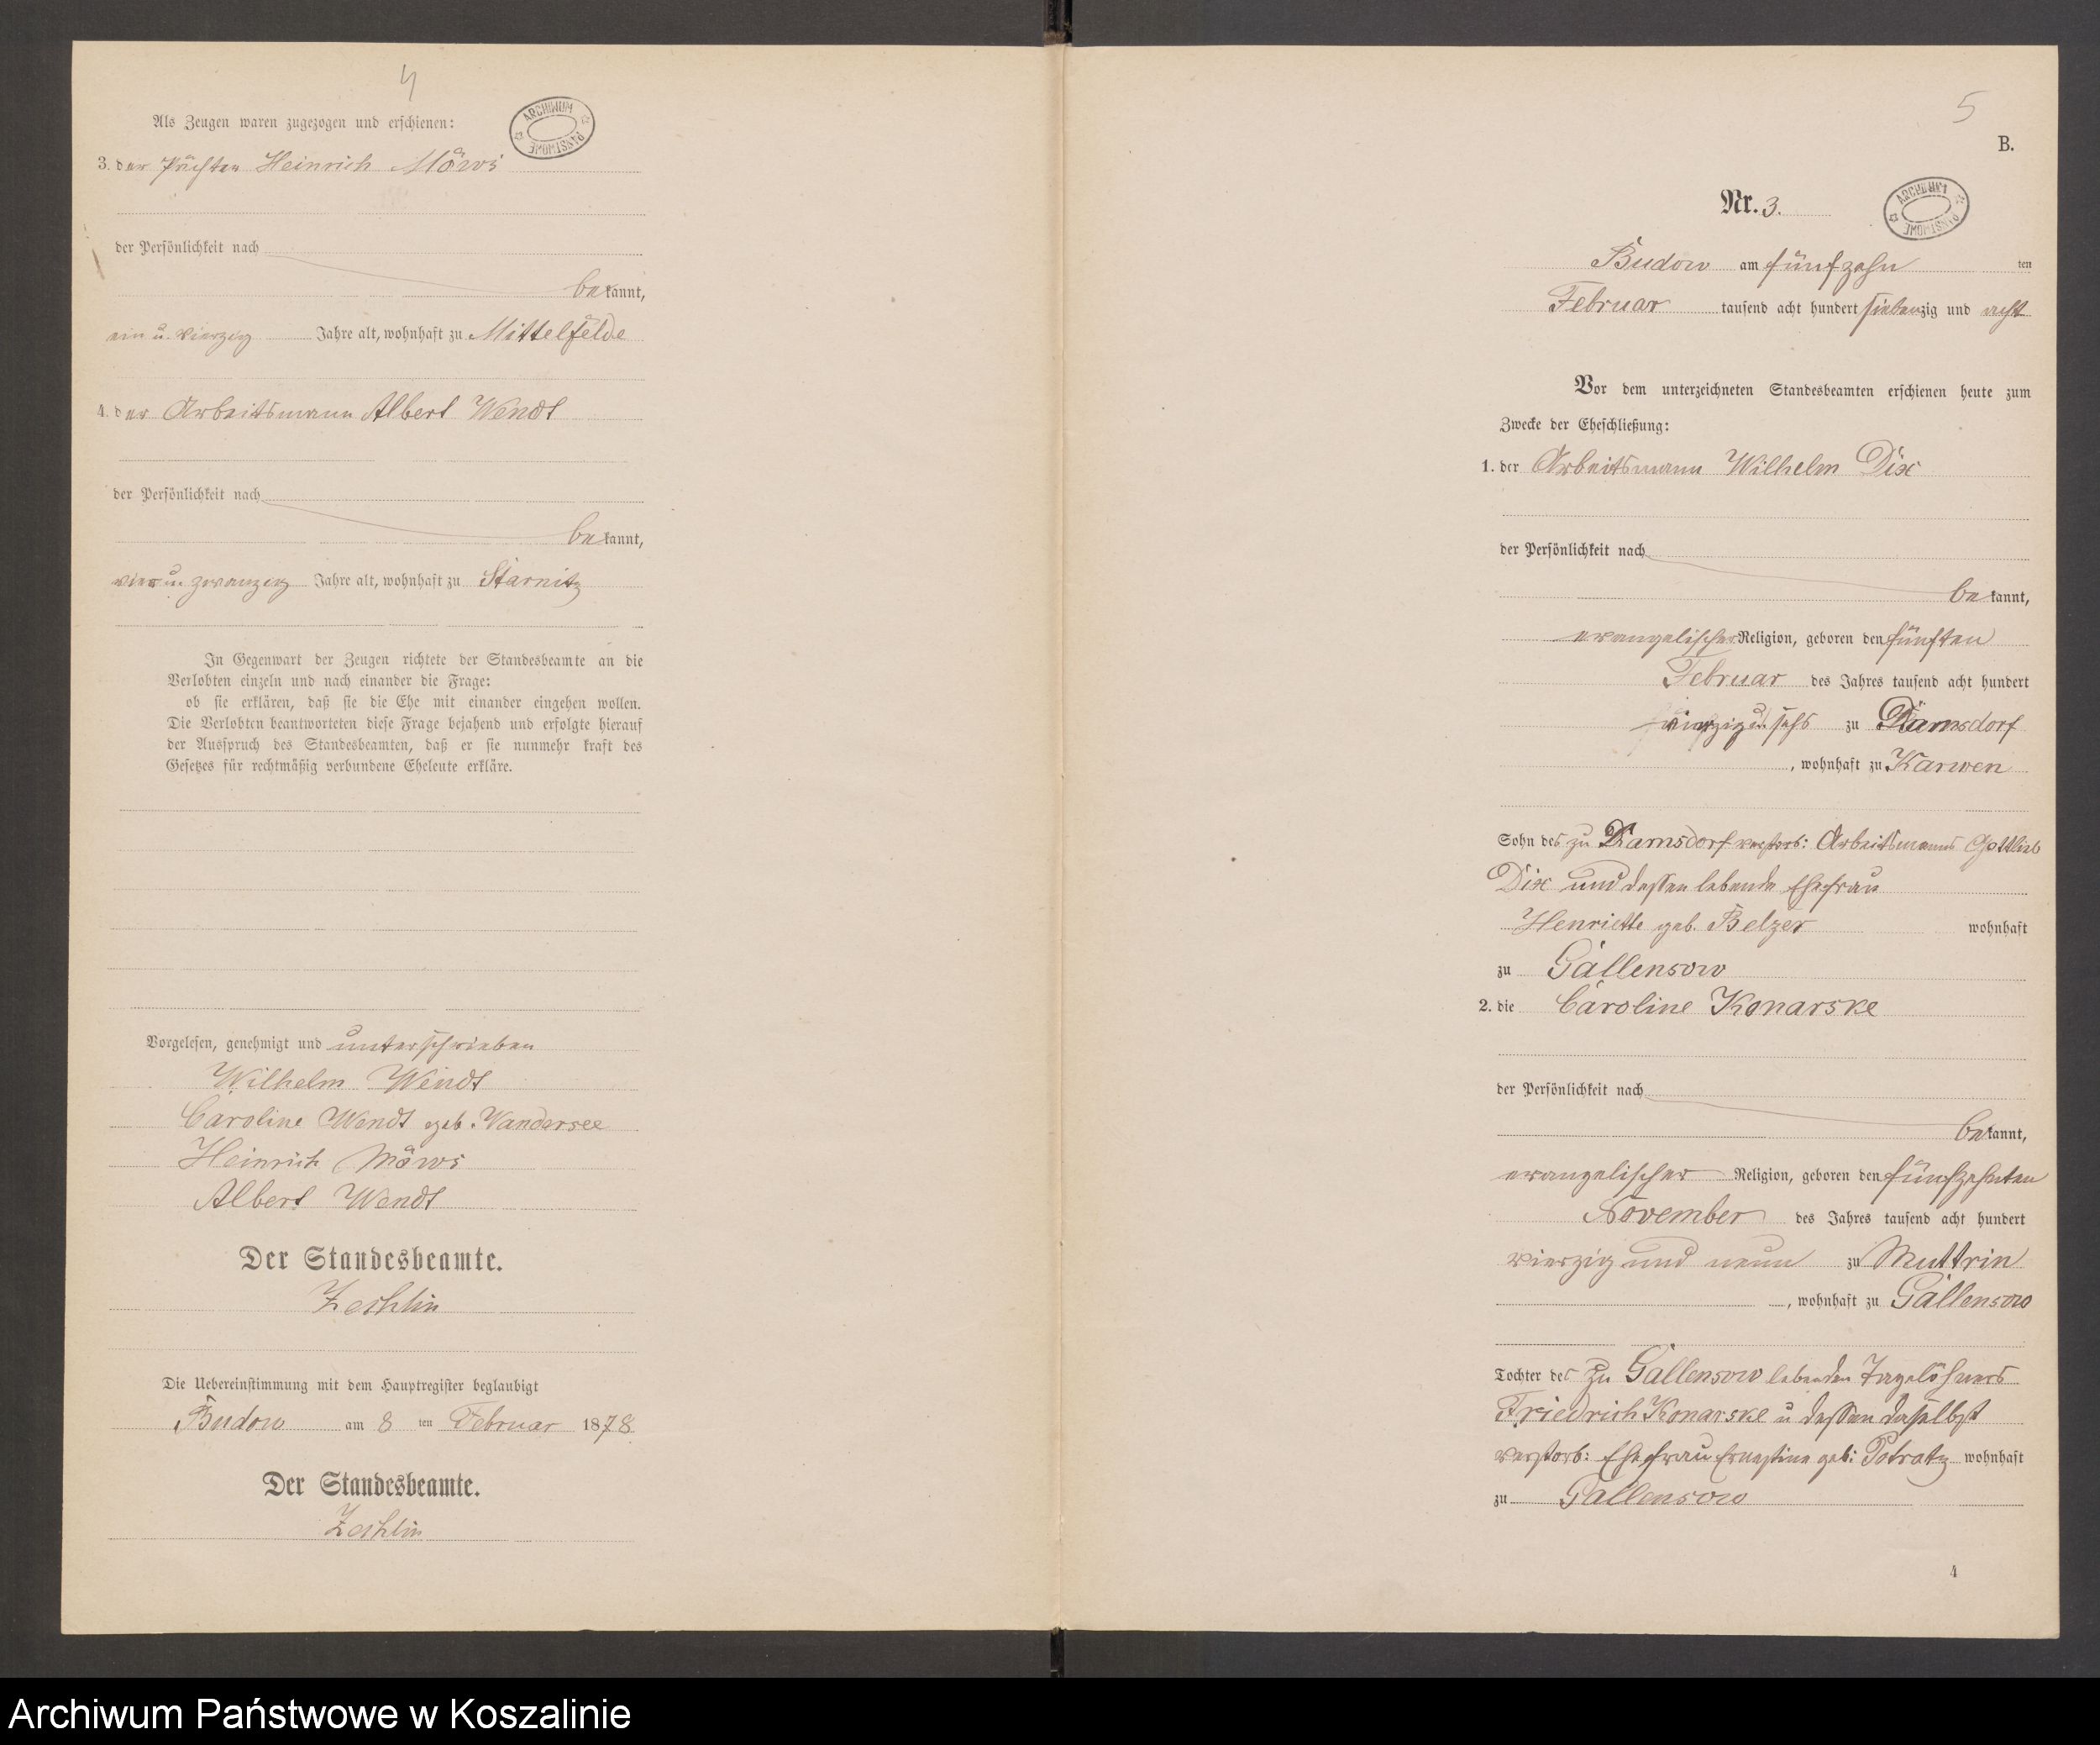 4
Als Zeugen waren zugezogen und erschienen:
ARCHIWUM PAŃSTWOWE
3. der Pächter Heinrich Möws
der Persönlichkeit nach
bekannt,
ein u. vierzig Jahre alt, wohnhaft zu Mittelfelde
4. der Arbeitsmann Albert Wendt
der Persönlichkeit nach
bekannt,
vier u. zwanzig Jahre alt, wohnhaft zu Starnitz
In Gegenwart der Zeugen richtete der Standesbeamte an die
Verlobten einzeln und nach einander die Frage:
ob sie erklären, daß sie die Ehe mit einander eingehen wollen.
Die Verlobten beantworteten diese Frage bejahend und erfolgte hierauf
der Ausspruch des Standesbeamten, daß er sie nunmehr kraft des
Gesetzes für rechtmäßig verbundene Eheleute erkläre.
Vorgelesen, genehmigt und unterschrieben
Wilhelm Wendt
Caroline Wendt geb. Vandersee
Heinrich Möws
Albert Wendt
Der Standesbeamte.
Zechlin
Die Uebereinstimmung mit dem Hauptregister beglaubigt
Budow am 8 ten Februar 1878.
Der Standesbeamte.
Zechlin
5
B.
Nr. 3.
ARCHIWUM PAŃSTWOWE
Budow am fünfzehn ten
Februar tausend acht hundert siebenzig und acht
Vor dem unterzeichneten Standesbeamten erschienen heute zum
Zwecke der Eheschließung:
1. der Arbeitsmann Wilhelm Dix
der Persönlichkeit nach
bekannt,
evangelischer Religion, geboren den fünften
Februar des Jahres tausend acht hundert
vierzig u. sechs zu Damsdorf
, wohnhaft zu Karwen
Sohn des zu Damsdorf verstorb: Arbeitsmanns Gottlieb
Dix und dessen lebende Ehefrau
Henriette geb. Belzer wohnhaft
zu Gallensow
2. die Caroline Konarske
der Persönlichkeit nach
bekannt,
evangelischer Religion, geboren den fünfzehnten
November des Jahres tausend acht hundert
vierzig und neun zu Muttrin
, wohnhaft zu Gallensow
Tochter des zu Gallensow lebenden Tagelöhners
Friedrich Konarske u dessen daselbst
verstorb: Ehefrau Ernestine geb: Potratz wohnhaft
zu Gallensow
4
Archiwum Państwowe w Koszalinie